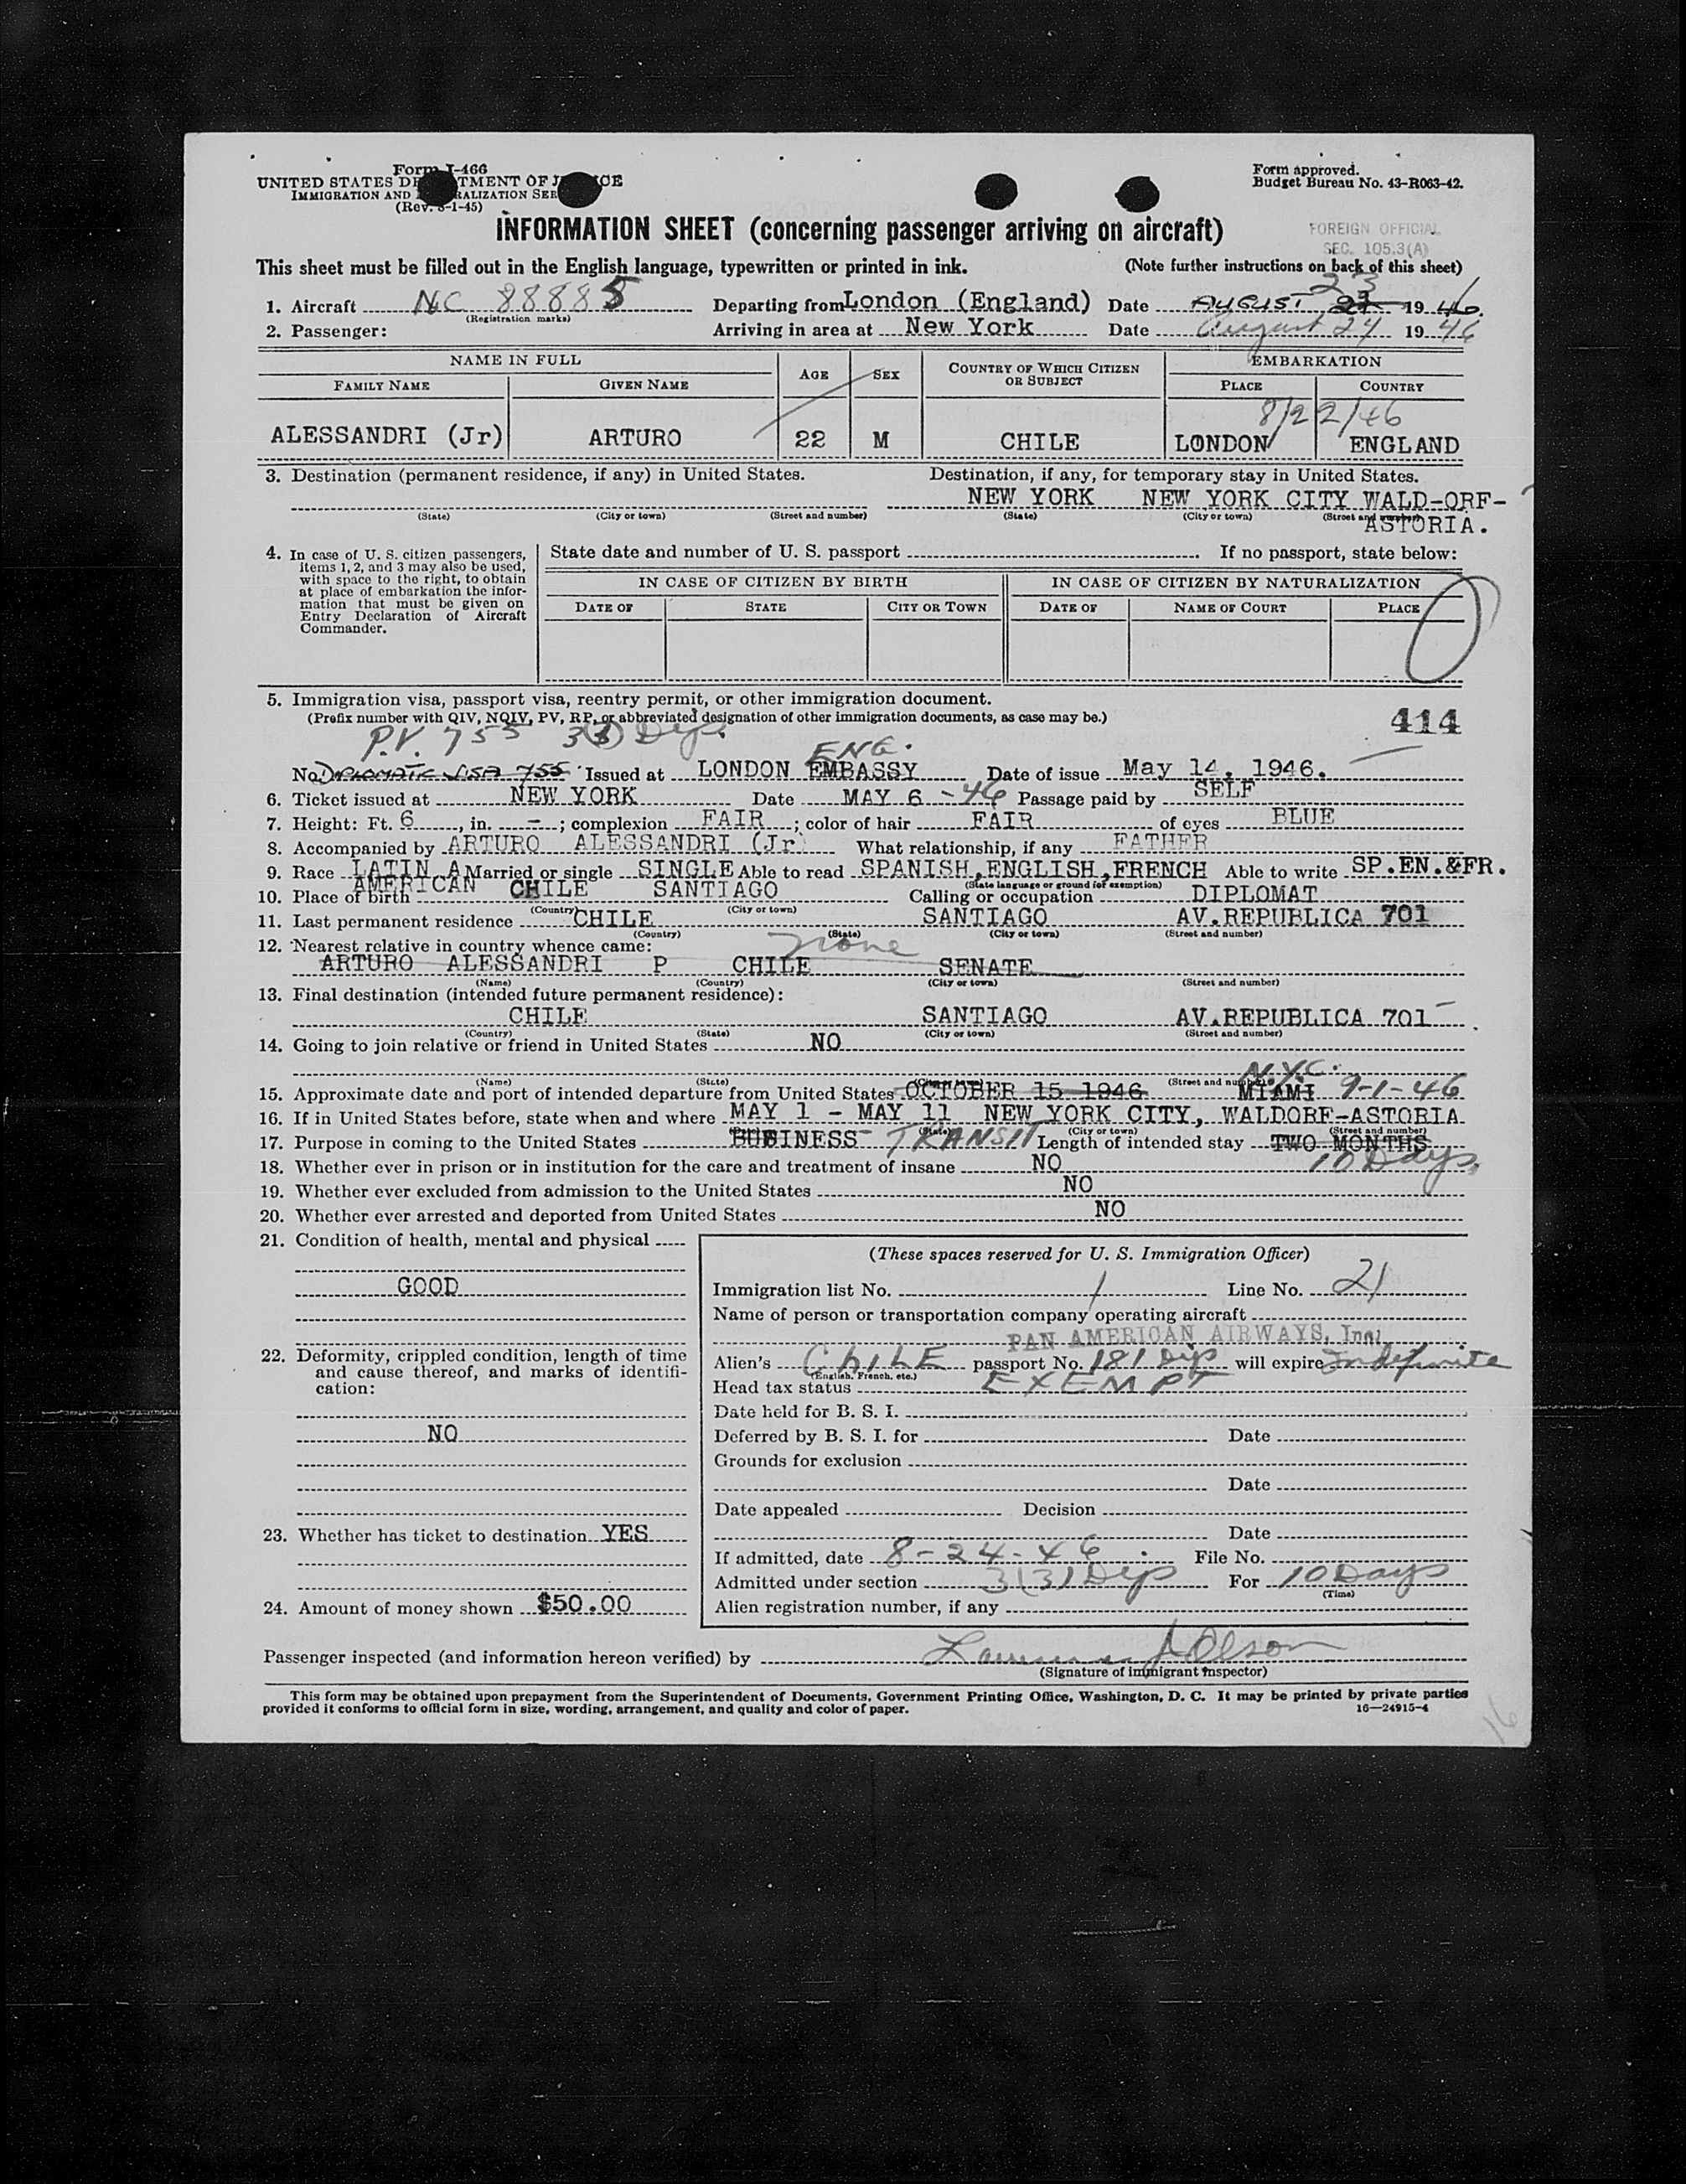 Form I-466
UNITED STATES DEPARTMENT OF JUSTICE
IMMIGRATION AND NATURALIZATION SERVICE
(Rev. 3-1-45)
Form approved.
Budget Bureau No. 43-R063-42.
INFORMATION SHEET (concerning passenger arriving on aircraft)
FOREIGN OFFICIAL
SEC. 105.3(A)
This sheet must be filled out in the English language, typewritten or printed in ink. (Note further instructions on back of this sheet)
23
1. Aircraft NC 88885 Departing from London (England) Date AUGUST 1946.
(Registration marks)
2. Passenger: Arriving in area at New York Date August 24 1946
NAME IN FULL AGE SEX COUNTRY OF WHICH CITIZEN OR SUBJECT EMBARKATION
FAMILY NAME GIVEN NAME PLACE COUNTRY
8/22/46
ALESSANDRI (Jr) ARTURO 22 M CHILE LONDON ENGLAND
3. Destination (permanent residence, if any) in United States. Destination, if any, for temporary stay in United States.
NEW YORK NEW YORK CITY WALD-ORF-
(State) (City or town) (Street and number) (State) (City or town) (Street and number)
ASTORIA.
4. In case of U. S. citizen passengers, items 1, 2, and 3 may also be used, with space to the right, to obtain at place of embarkation the information that must be given on Entry Declaration of Aircraft Commander.
State date and number of U. S. passport If no passport, state below:
IN CASE OF CITIZEN BY BIRTH IN CASE OF CITIZEN BY NATURALIZATION
DATE OF STATE CITY OR TOWN DATE OF NAME OF COURT PLACE
5. Immigration visa, passport visa, reentry permit, or other immigration document.
(Prefix number with QIV, NQIV, PV, RP, or abbreviated designation of other immigration documents, as case may be.)
414
P.V. 755 3(3) Dip.
ENG.
No. DIPLOMATIC VISA 755 Issued at LONDON EMBASSY Date of issue May 14, 1946.
6. Ticket issued at NEW YORK Date MAY 6 -46 Passage paid by SELF
7. Height: Ft. 6, in. - ; complexion FAIR ; color of hair FAIR of eyes BLUE
8. Accompanied by ARTURO ALESSANDRI (Jr) What relationship, if any FATHER
9. Race LATIN A Married or single SINGLE Able to read SPANISH, ENGLISH, FRENCH Able to write SP.EN.&FR.
AMERICAN
(State language or ground for exemption)
10. Place of birth CHILE SANTIAGO Calling or occupation DIPLOMAT
(Country) (City or town)
11. Last permanent residence CHILE SANTIAGO AV.REPUBLICA 701
(Country) (State) (City or town) (Street and number)
12. Nearest relative in country whence came: none
ARTURO ALESSANDRI P CHILE SENATE
(Name) (Country) (City or town) (Street and number)
13. Final destination (intended future permanent residence):
CHILE SANTIAGO AV.REPUBLICA 701
(Country) (State) (City or town) (Street and number)
14. Going to join relative or friend in United States NO
(Name) (State) (City or town) (Street and number)
N.Y.C.
15. Approximate date and port of intended departure from United States OCTOBER 15 1946 MIAMI 9-1-46
16. If in United States before, state when and where MAY 1 - MAY 11 NEW YORK CITY, WALDORF-ASTORIA
(State) (City or town) (Street and number)
17. Purpose in coming to the United States BUSINESS TRANSIT Length of intended stay TWO MONTHS
10 Days
18. Whether ever in prison or in institution for the care and treatment of insane NO
19. Whether ever excluded from admission to the United States NO
20. Whether ever arrested and deported from United States NO
21. Condition of health, mental and physical
GOOD
22. Deformity, crippled condition, length of time and cause thereof, and marks of identification:
NO
23. Whether has ticket to destination YES
24. Amount of money shown $50.00
(These spaces reserved for U. S. Immigration Officer)
Immigration list No. 1 Line No. 21
Name of person or transportation company operating aircraft
PAN AMERICAN AIRWAYS, Inc.
Alien's CHILE passport No. 181 Dip will expire Indefinite
(English, French, etc.)
Head tax status EXEMPT
Date held for B. S. I.
Deferred by B. S. I. for Date
Grounds for exclusion
Date
Date appealed Decision
Date
If admitted, date 8-24-46 File No.
Admitted under section 3(3) Dip For 10 Days
(Time)
Alien registration number, if any
Passenger inspected (and information hereon verified) by Olson
(Signature of immigrant inspector)
This form may be obtained upon prepayment from the Superintendent of Documents, Government Printing Office, Washington, D. C. It may be printed by private parties
provided it conforms to official form in size, wording, arrangement, and quality and color of paper. 16—24915-4
16